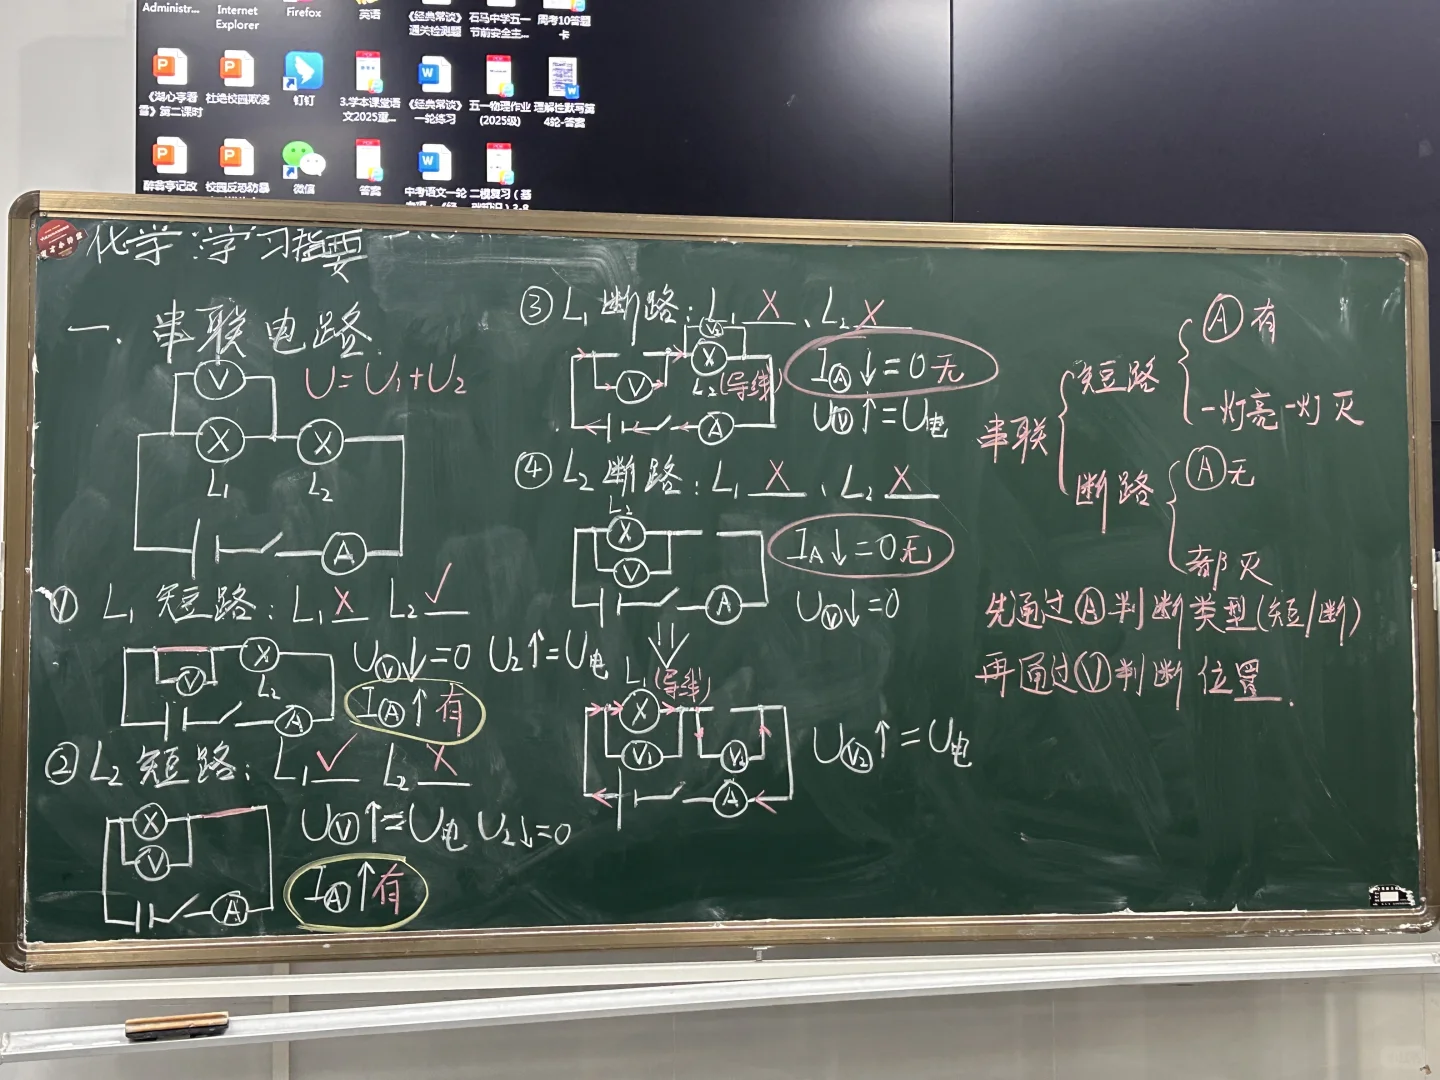 Administr...
Internet Explorer
Firefox
英语
《经典常谈》通关检测题
石马中学五一节前安全主...
周考10答题卡
《湖心亭看雪》第二课时
杜绝校园欺凌
钉钉
3.学本课堂语文2025重...
《经典常谈》一轮练习
五一物理作业(2025级)
理解性默写第4轮-答案
醉翁亭记改
校园反恐防暴
微信
答案
中考语文一轮
二模复习（基
化学:学习指要
一、串联电路
V
U=U₁+U₂
X X
L₁ L₂
A
① L₁短路: L₁ X L₂ ✓
X
V
L₂
A
UⓋ↓=0 U₂↑=U电
IⒶ↑有
② L₂短路: L₁ ✓ L₂ X
X
V
A
UⓋ↑=U电 U₂↓=0
IⒶ↑有
③ L₁断路: L₁ X、L₂ X
V₂
X
V
L₂(导线)
A
IⒶ↓=0无
UⓋ↑=U电
④ L₂断路: L₁ X、L₂ X
L₂
X
V
A
I_A↓=0无
UⓋ↓=0
L₁(导线)
X
V₁ V₂
A
UV₂↑=U电
串联
短路
Ⓐ有
一灯亮一灯灭
断路
Ⓐ无
都灭
先通过Ⓐ判断类型(短/断)
再通过Ⓥ判断位置.